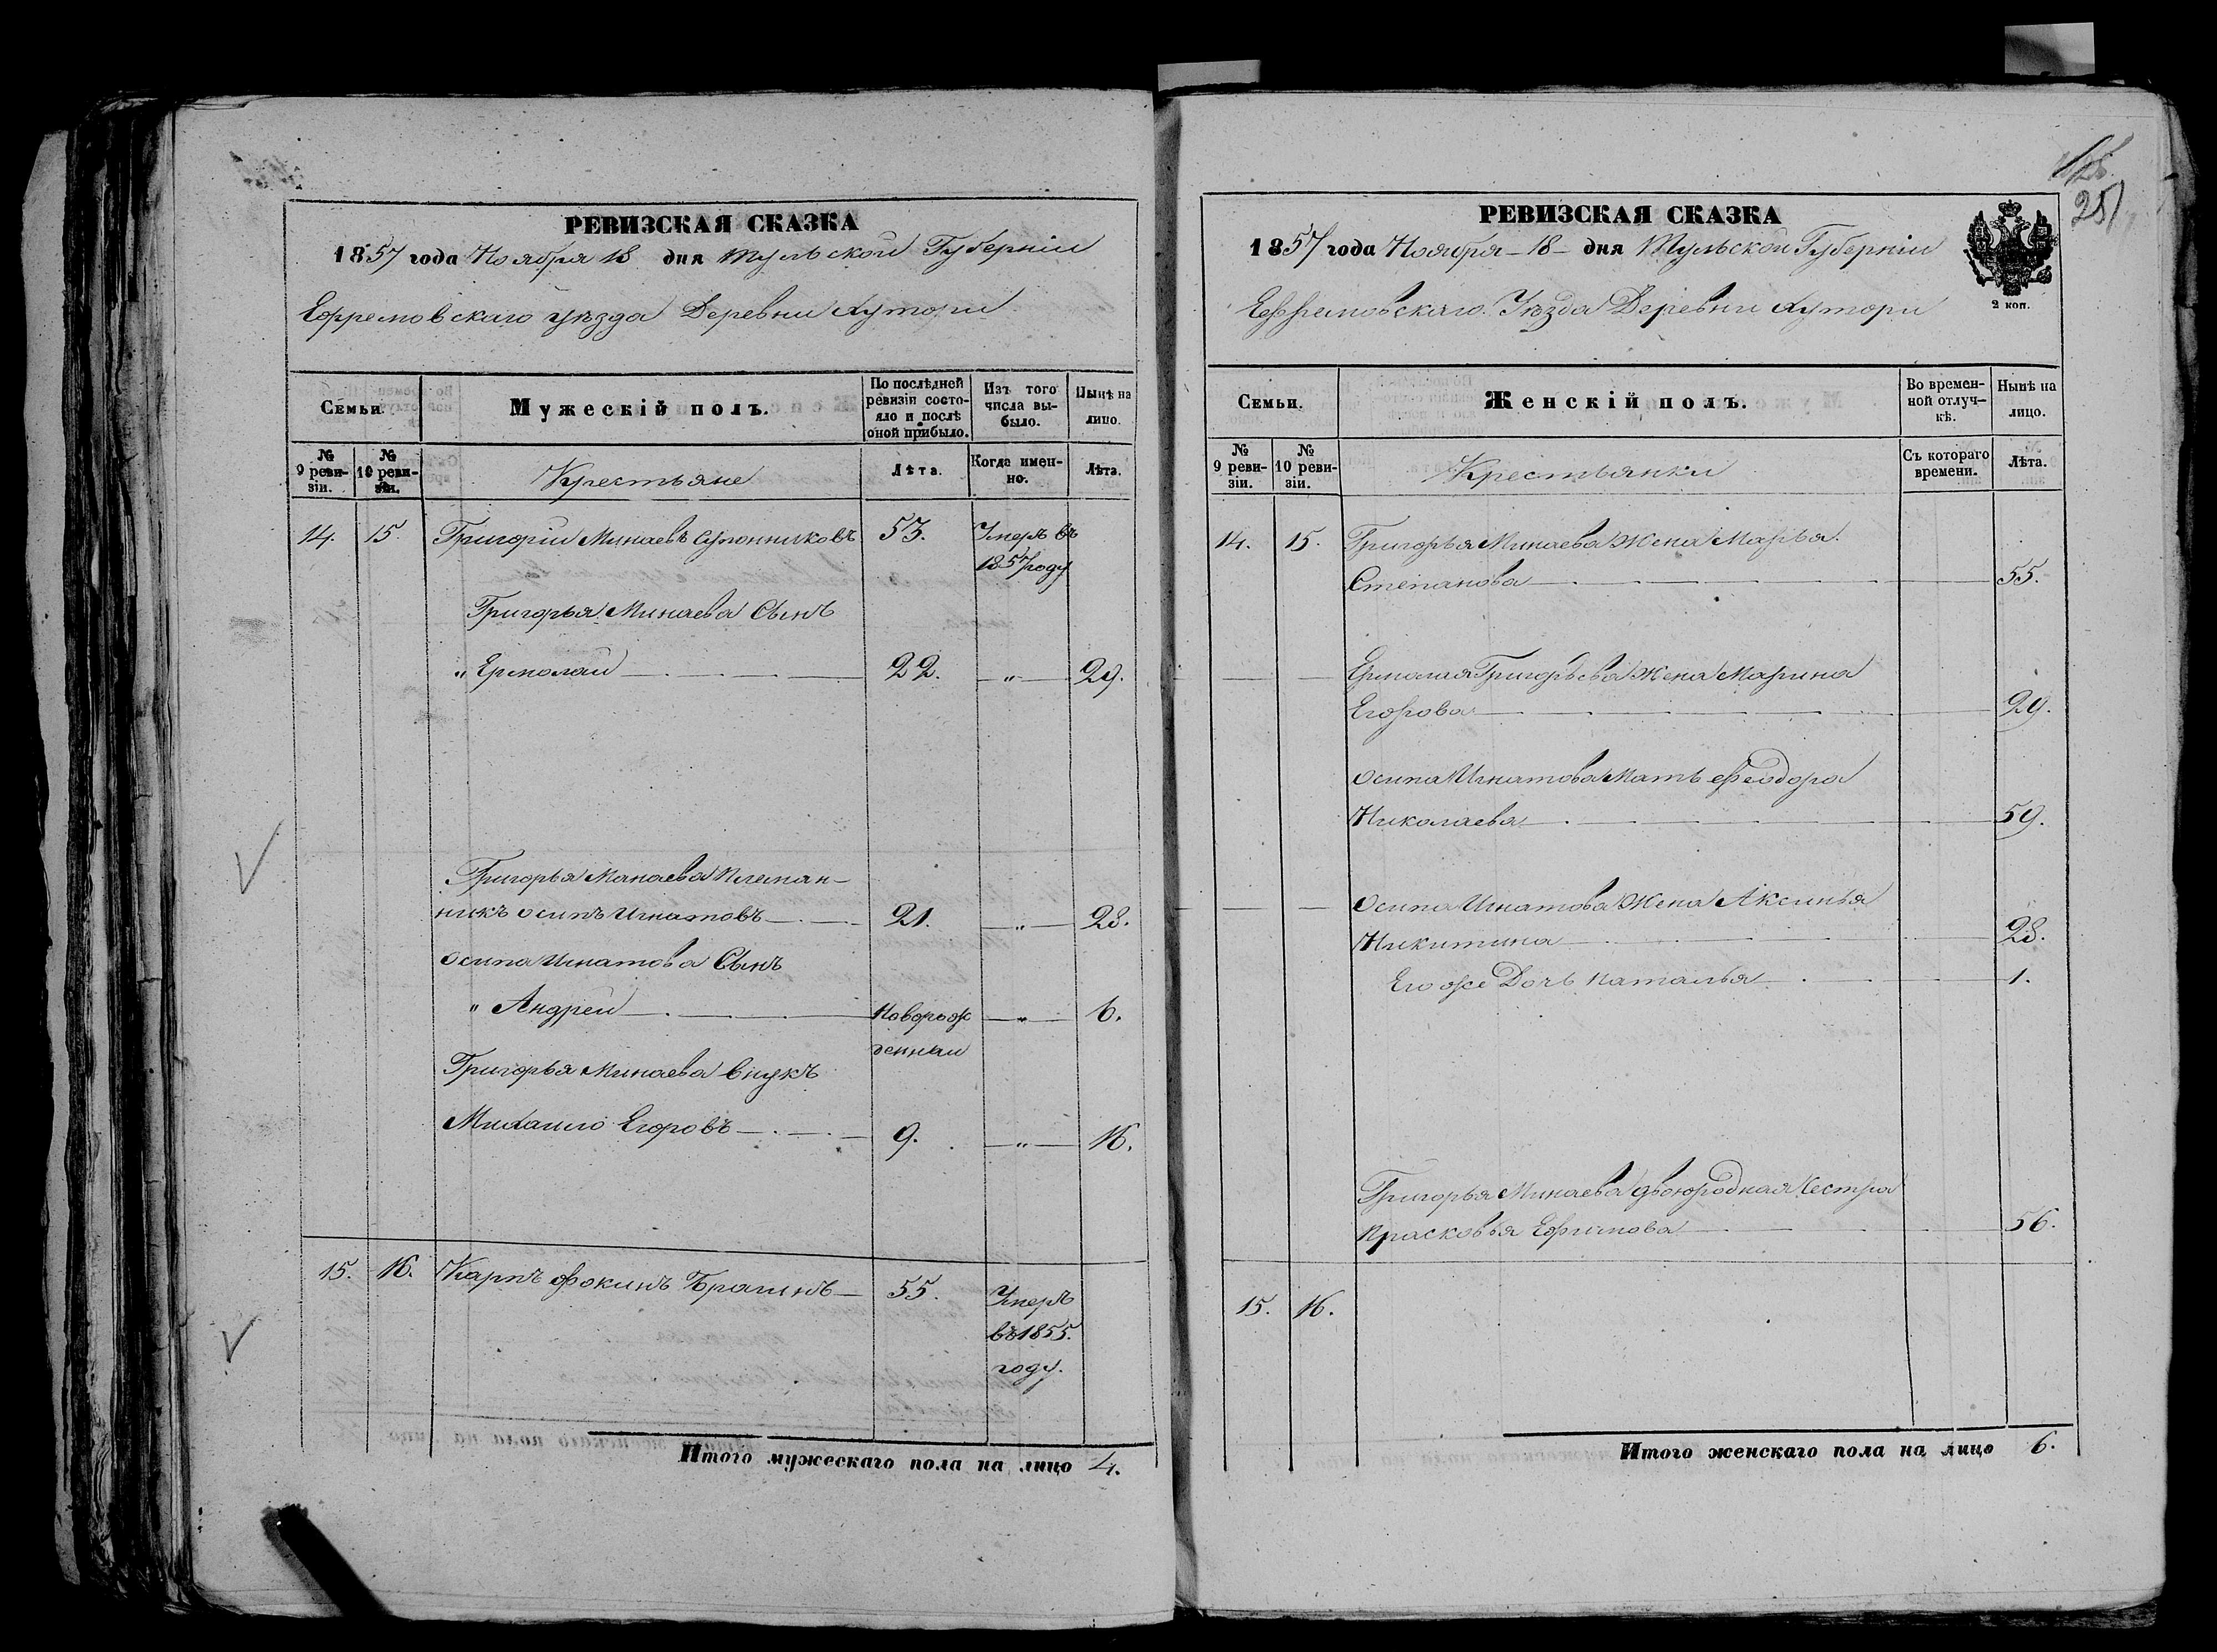 РЕВИЗСКАЯ СКАЗКА
1857 года Ноября 18 дня Тульской Губерніи
Ефремовскаго уѣзда Деревни Хутори
Семьи.
Мужескій полъ.
По послѣдней ревизіи состояло и послѣ оной прибыло.
Изъ того числа выбыло.
Нынѣ на лицо.
№ 9 ревизіи.
№ 10 ревизіи.
Крестьяне
Лѣта.
Когда именно.
Лѣта.
14. 15. Григорій Минаевъ Супонниковъ 53. Умеръ въ
1857 году
Григорья Минаева Сынъ
„ Ермолай 22. „ 29.
Григорья Минаева племян-
никъ Осипъ Игнатовъ 21. „ 28.
Осипа Игнатова Сынъ
„ Андрей новорож „ 6.
денный
Григорья Минаева внукъ
Михайло Егоровъ 9. „ 16.
15. 16. Карпъ Фокинъ Брагинъ 55. Умеръ
въ 1855.
году.
Итого мужескаго пола на лицо 4.
251
РЕВИЗСКАЯ СКАЗКА
1857 года Ноября 18 дня Тульской Губерніи
Ефремовскаго Уѣзда Деревни Хутори
2 коп.
Семьи.
Женскій полъ.
Во временной отлучкѣ.
Нынѣ на лицо.
№ 9 ревизіи.
№ 10 ревизіи.
Крестьянки
Съ котораго времени.
Лѣта.
14. 15. Григорья Минаева Жена Марья
Степанова 55.
Ермолая Григорьева Жена Марина
Егорова 29.
Осипа Игнатова Мать Феодора
Николаева 59.
Осипа Игнатова Жена Аксинья
Никитина 28.
Его же Дочь Наталья 1.
Григорья Минаева двоюродная Сестра
Прасковья Ефимова 56.
15. 16.
Итого женскаго пола на лицо 6.